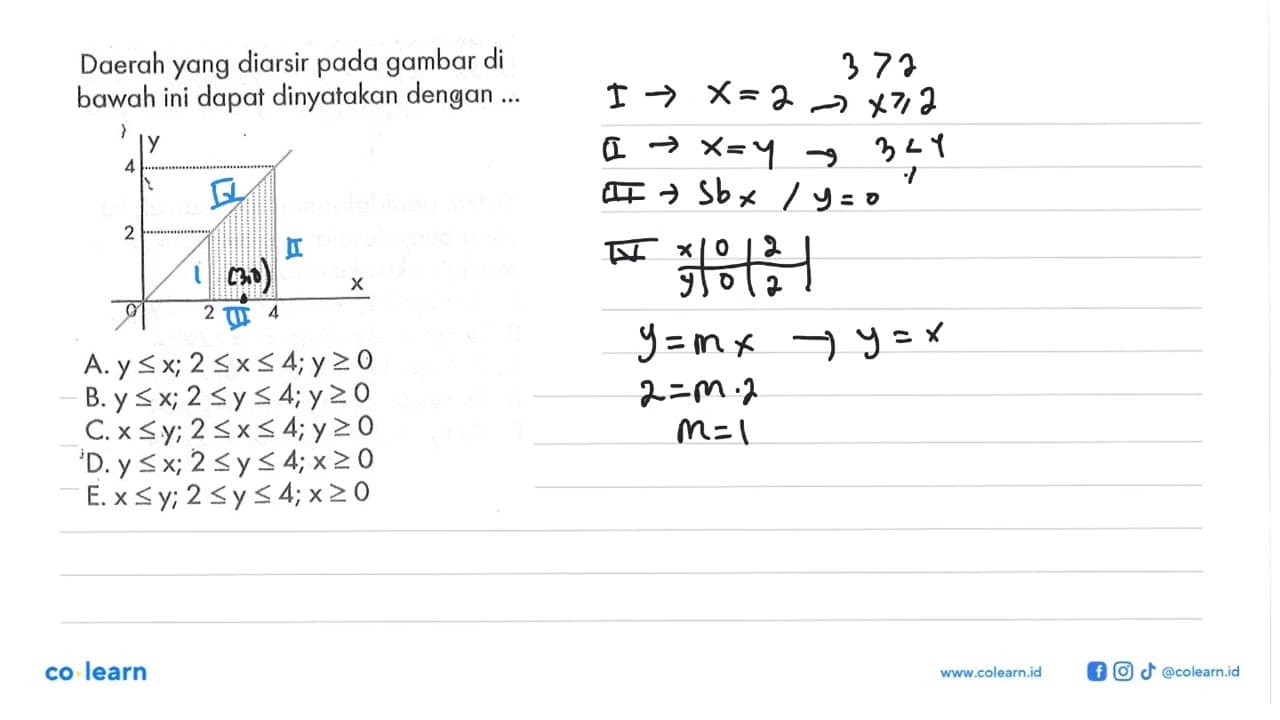 Daerah yang diarsir pada gambar di
bawah ini dapat dinyatakan dengan ...
y
4
2
0
2
4
x
I
II
III
IV
(3,0)
A. y ≤ x; 2 ≤ x ≤ 4; y ≥ 0
B. y ≤ x; 2 ≤ y ≤ 4; y ≥ 0
C. x ≤ y; 2 ≤ x ≤ 4; y ≥ 0
D. y ≤ x; 2 ≤ y ≤ 4; x ≥ 0
E. x ≤ y; 2 ≤ y ≤ 4; x ≥ 0
3 > 2
I → x = 2 → x ≥ 2
II → x = 4 → 3 < 4
III → Sb x / y = 0
IV x | 0 | 2
y | 0 | 2
y = m x → y = x
2 = m . 2
m = 1
co learn
www.colearn.id
@colearn.id